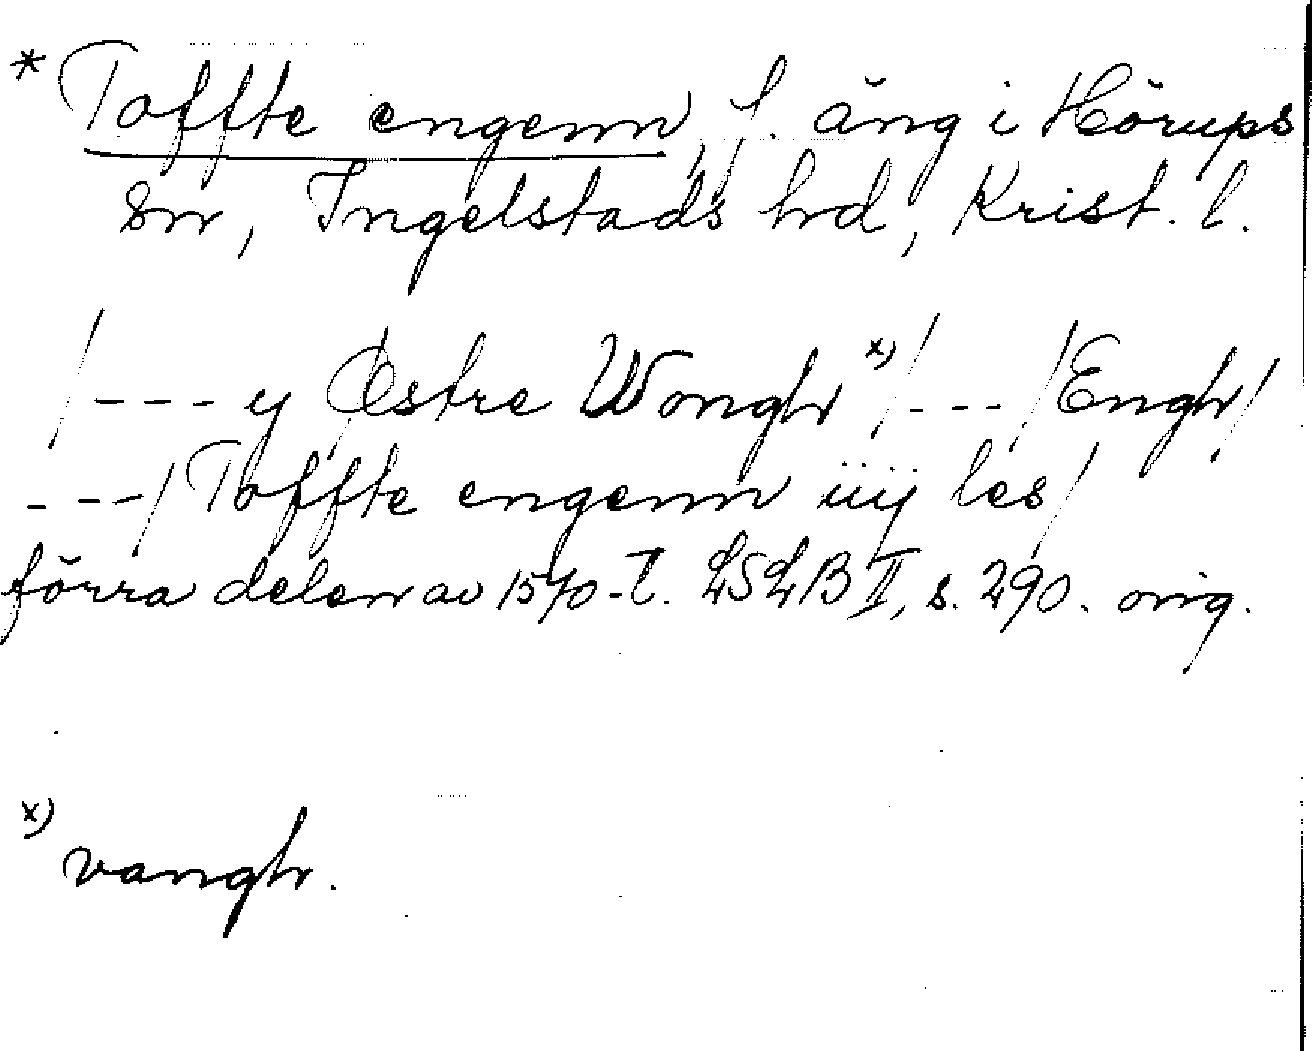 * Toffte engenn, f. äng i Hörups
sn, Ingelstads hrd, Krist. l.
/--- y Østre Wongh x) /---/ Engh /
---/ Toffte engenn iiij les /
förra delen av 1570-t. LSLB II, s. 290. orig.
x) vangh.